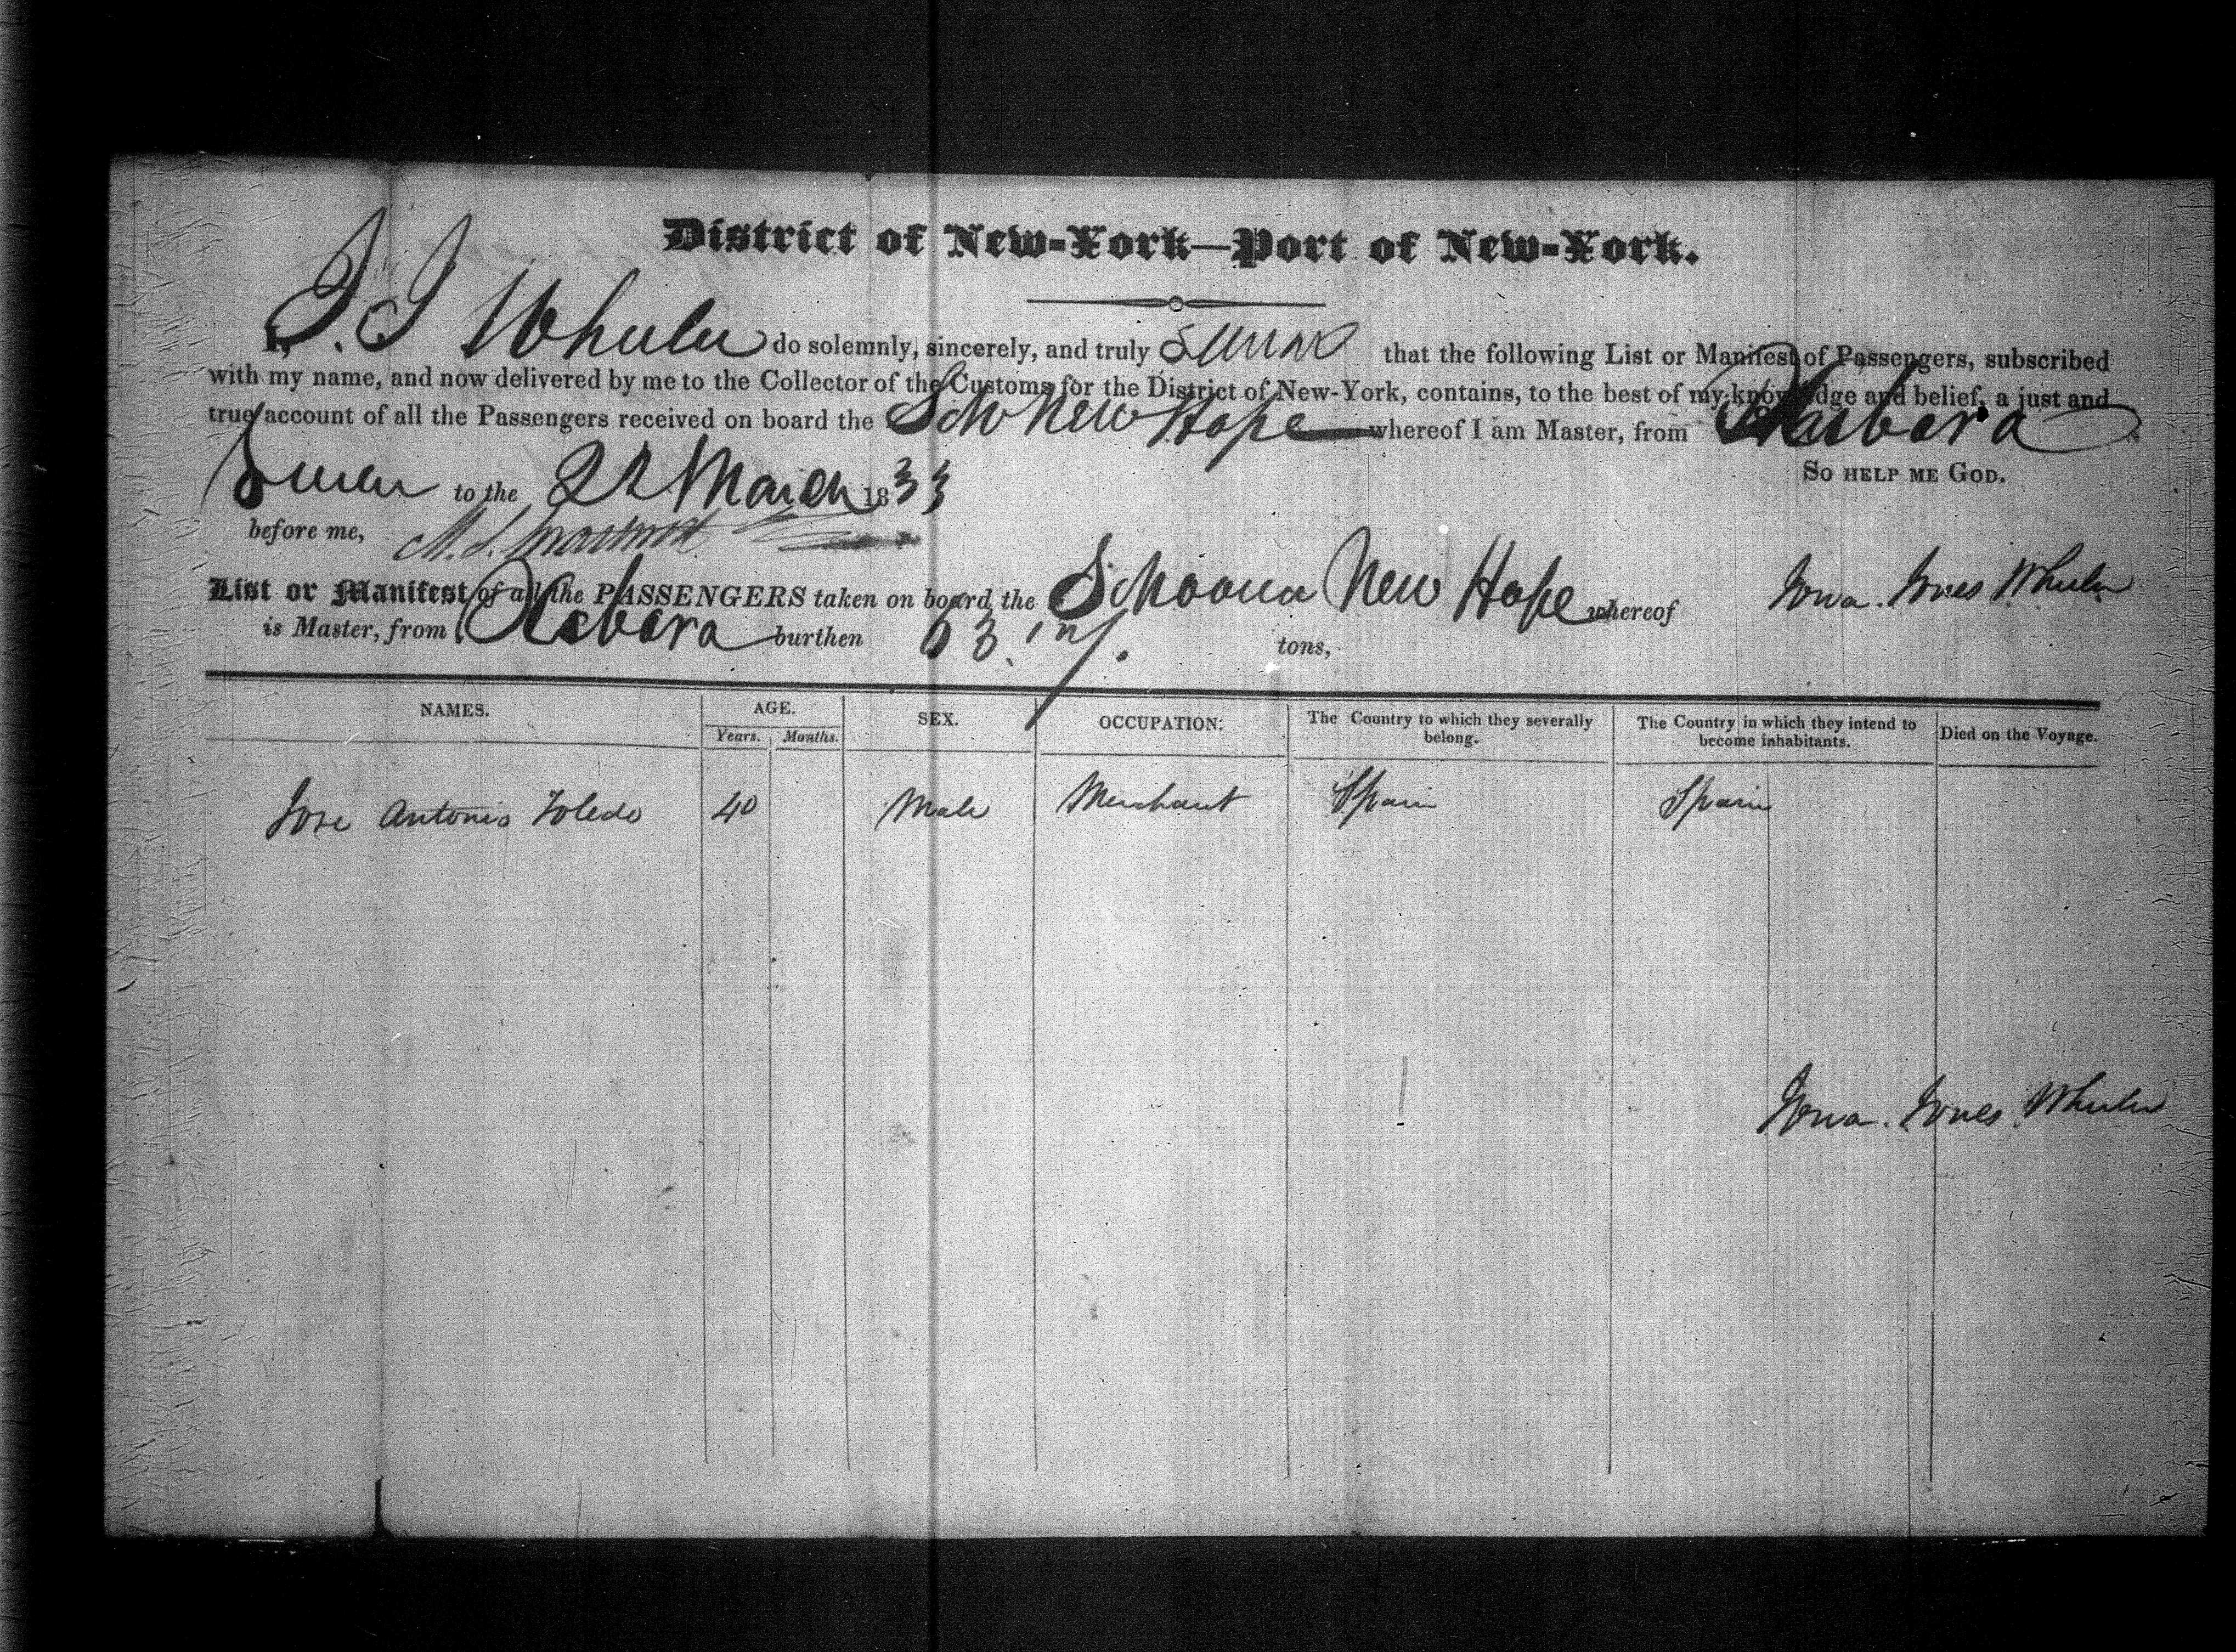 District of New-York—Port of New-York.
I, J. J Wheeler do solemnly, sincerely, and truly swear that the following List or Manifest of Passengers, subscribed
with my name, and now delivered by me to the Collector of the Customs for the District of New-York, contains, to the best of my knowledge and belief, a just and
true account of all the Passengers received on board the Sch New Hope whereof I am Master, from
So help me God.
Sworn to the 22 March 1833
before me,
List or Manifest of all the PASSENGERS taken on board the Schooner New Hope whereof Jona. Jones Wheeler
is Master, from burthen tons,
NAMES. AGE. SEX. OCCUPATION: The Country to which they severally belong. The Country in which they intend to become inhabitants. Died on the Voyage.
Years. Months.
Jose Antonio Toledo 40 Male Merchant Spain Spain
Jona. Jones Wheeler